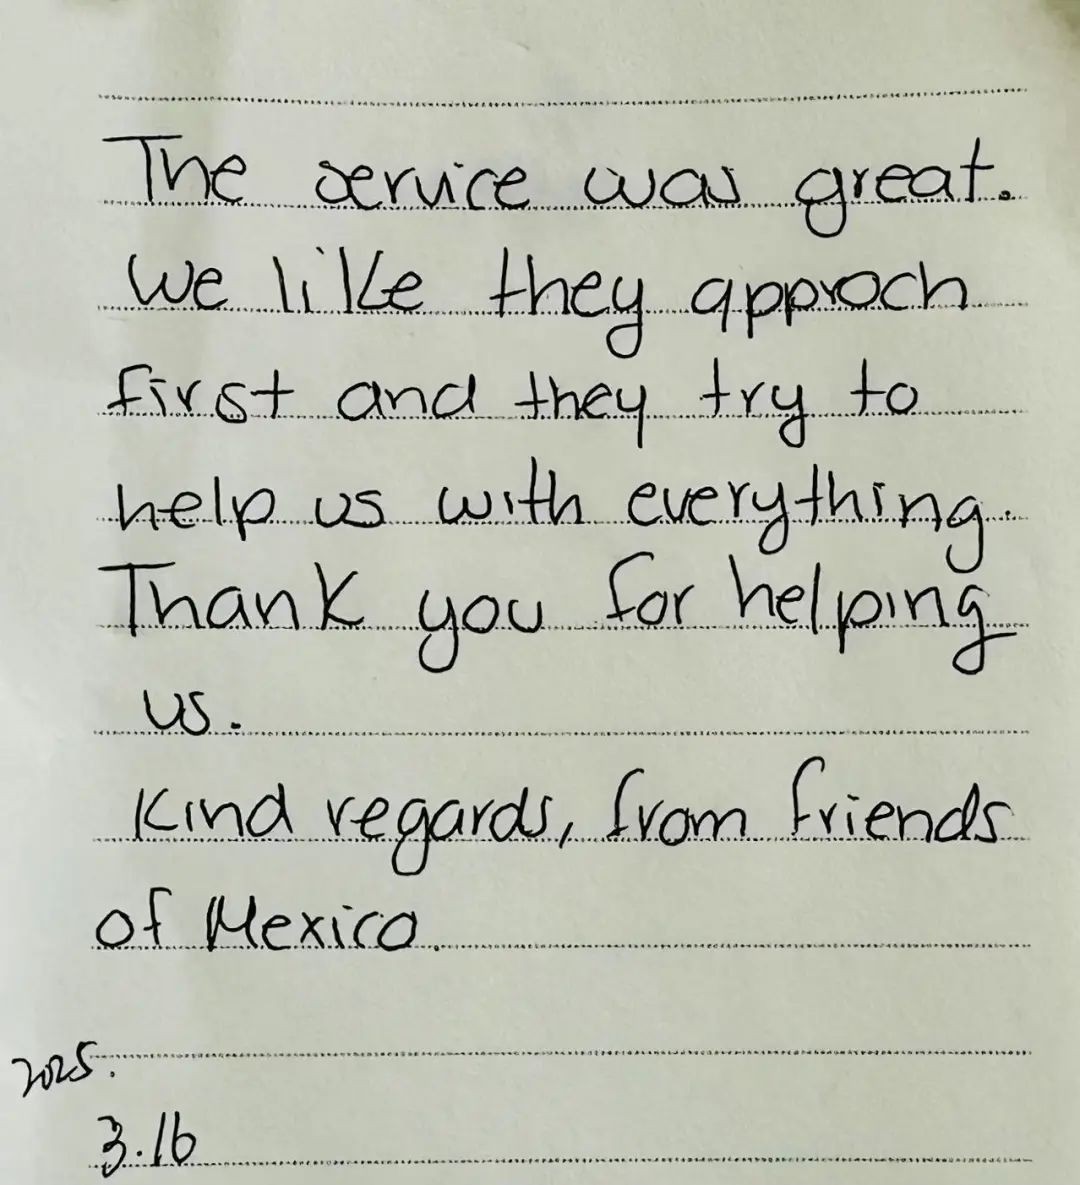 The service was great.
We like they approch
first and they try to
help us with everything.
Thank you for helping
us.
Kind regards, from friends
of Mexico.
2025.
3.16